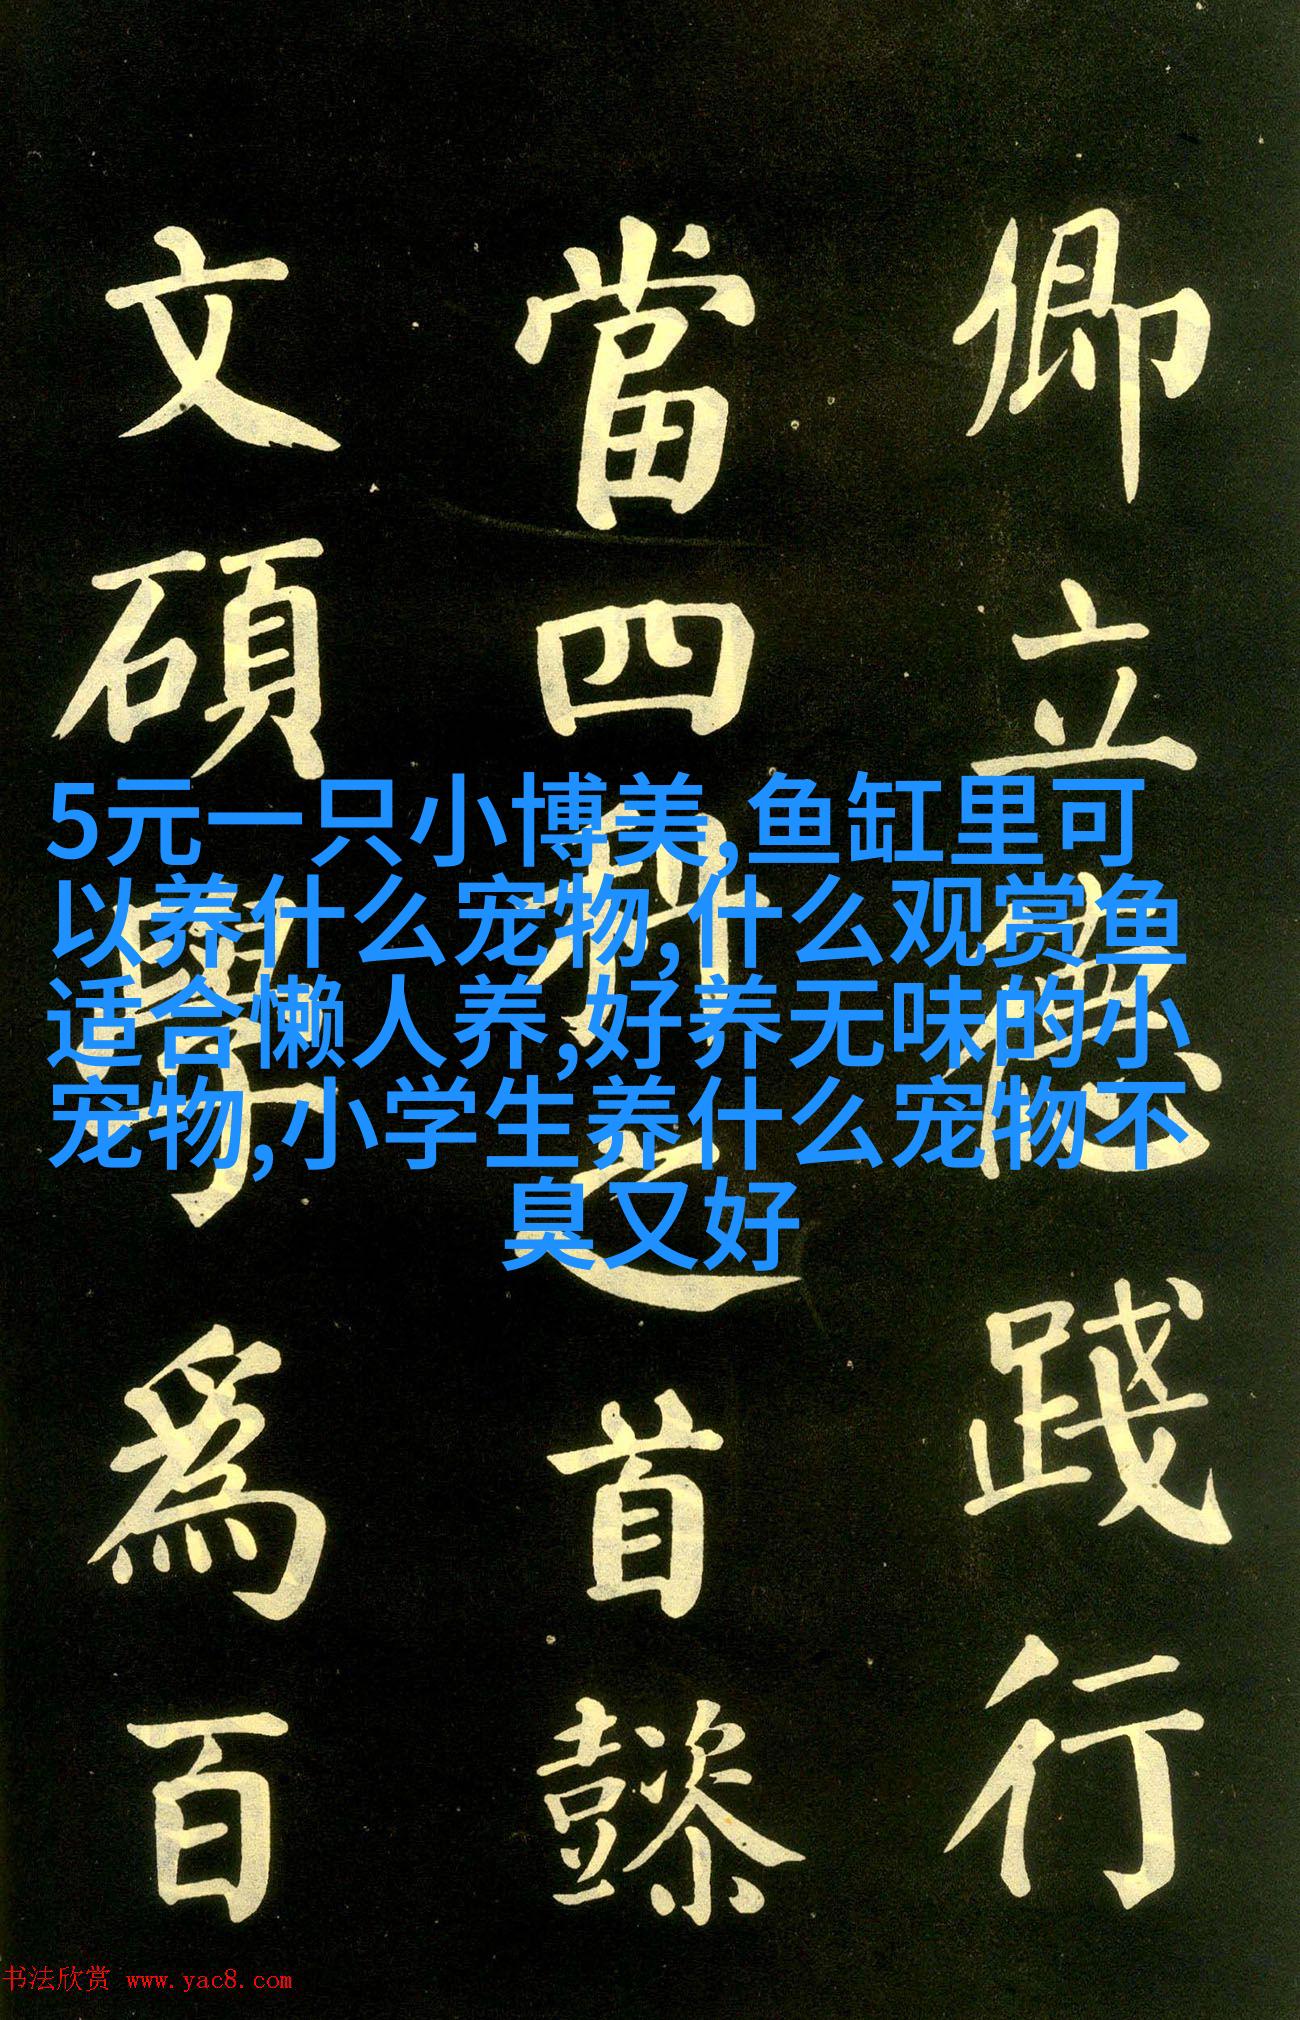 卿立德踐行
當四科之首懿
文碩學爲百
5元一只小博美,鱼缸里可
以养什么宠物,什么观赏鱼
适合懒人养,好养无味的小
宠物,小学生养什么宠物不
臭又好
书法欣赏 www.yac8.com